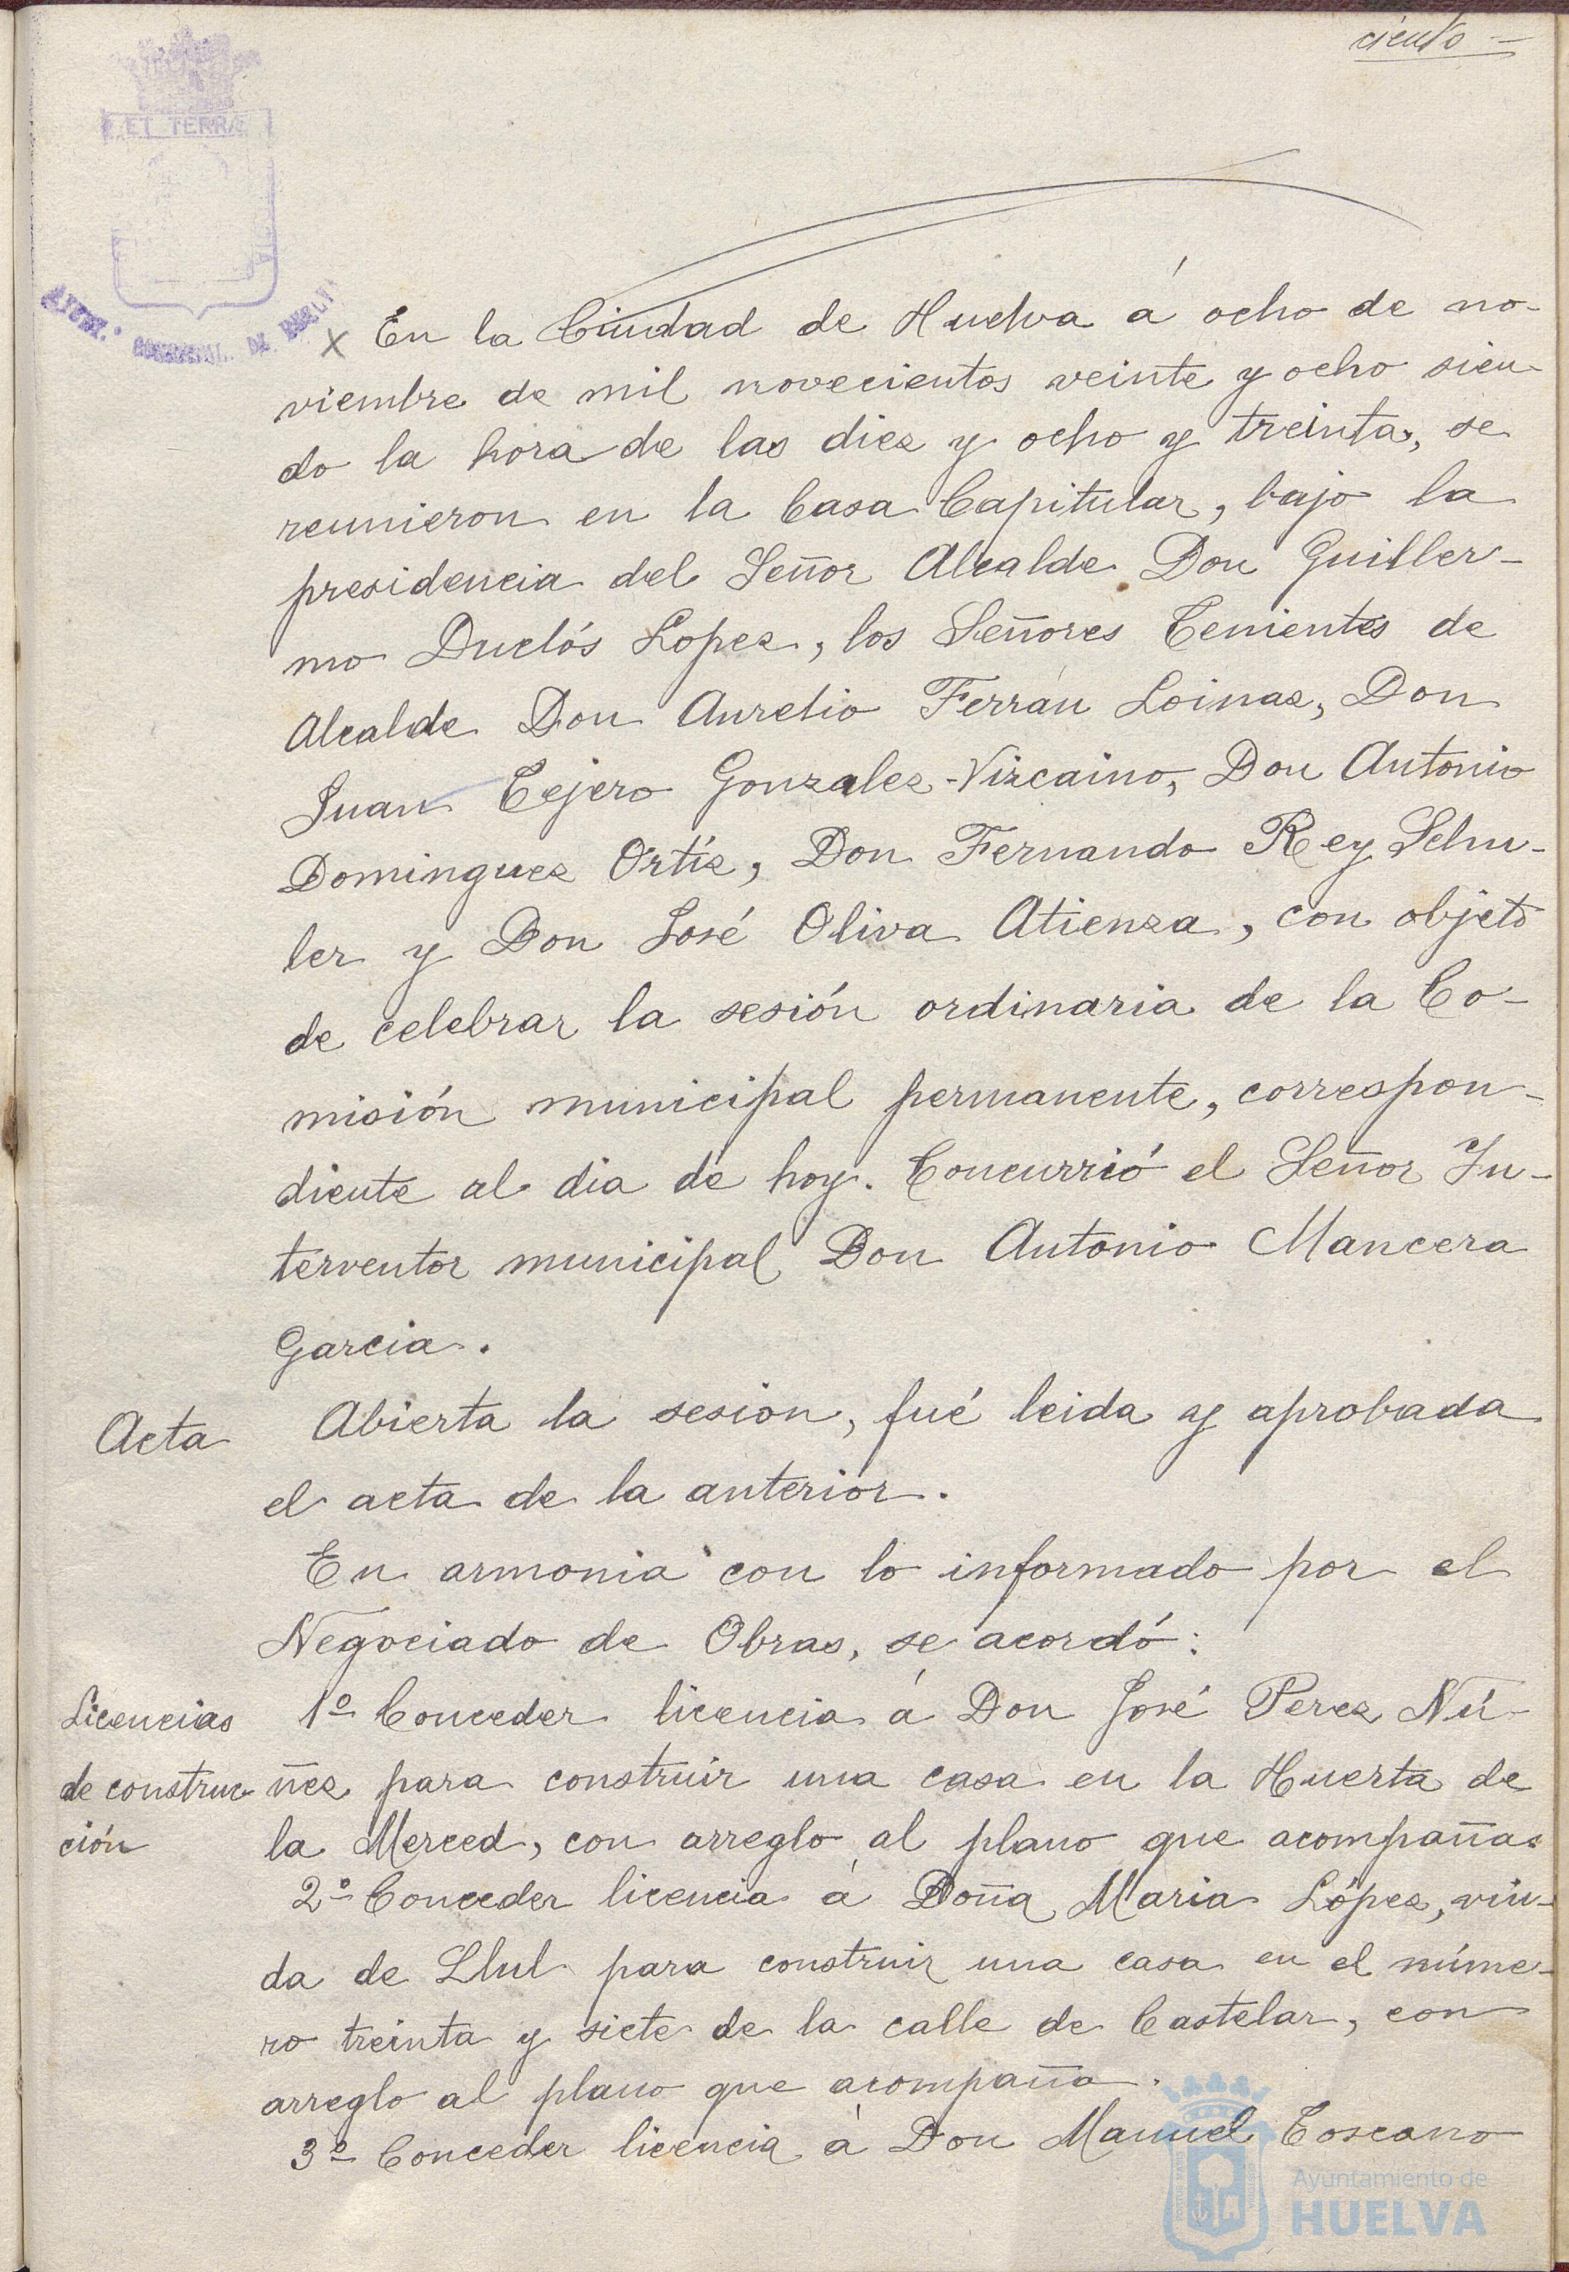 ciento
ET TERRÆ
AYUNT.º CONSTITUCIONAL DE HUELVA
x En la Ciudad de Huelva á ocho de no-
viembre de mil novecientos veinte y ocho sien-
do la hora de las diez y ocho y treinta, se
reunieron en la Casa Capitular, bajo la
presidencia del Señor Alcalde Don Guiller-
mo Duclós Lopez, los Señores Tenientes de
Alcalde Don Aurelio Ferrán Loinaz, Don
Juan Tejero Gonzalez-Vizcaino, Don Antonio
Dominguez Ortíz, Don Fernando Rey Schu-
ler y Don José Oliva Atienza, con objeto
de celebrar la sesión ordinaria de la Co-
misión municipal permanente, correspon-
diente al dia de hoy. Concurrió el Señor In-
terventor municipal Don Antonio Mancera
Garcia.
Acta Abierta la sesion, fué leida y aprobada
el acta de la anterior.
En armonia con lo informado por el
Negociado de Obras, se acordó:
Licencias 1º Conceder licencia á Don José Perez Nú-
de construc- ñez para construir una casa en la Huerta de
ción la Merced, con arreglo al plano que acompaña.
2º Conceder licencia á Doña Maria López, viu-
da de Llul para construir una casa en el núme-
ro treinta y siete de la calle de Castelar, con
arreglo al plano que acompaña.
3º Conceder licencia á Don Manuel Toscano
Ayuntamiento de
HUELVA